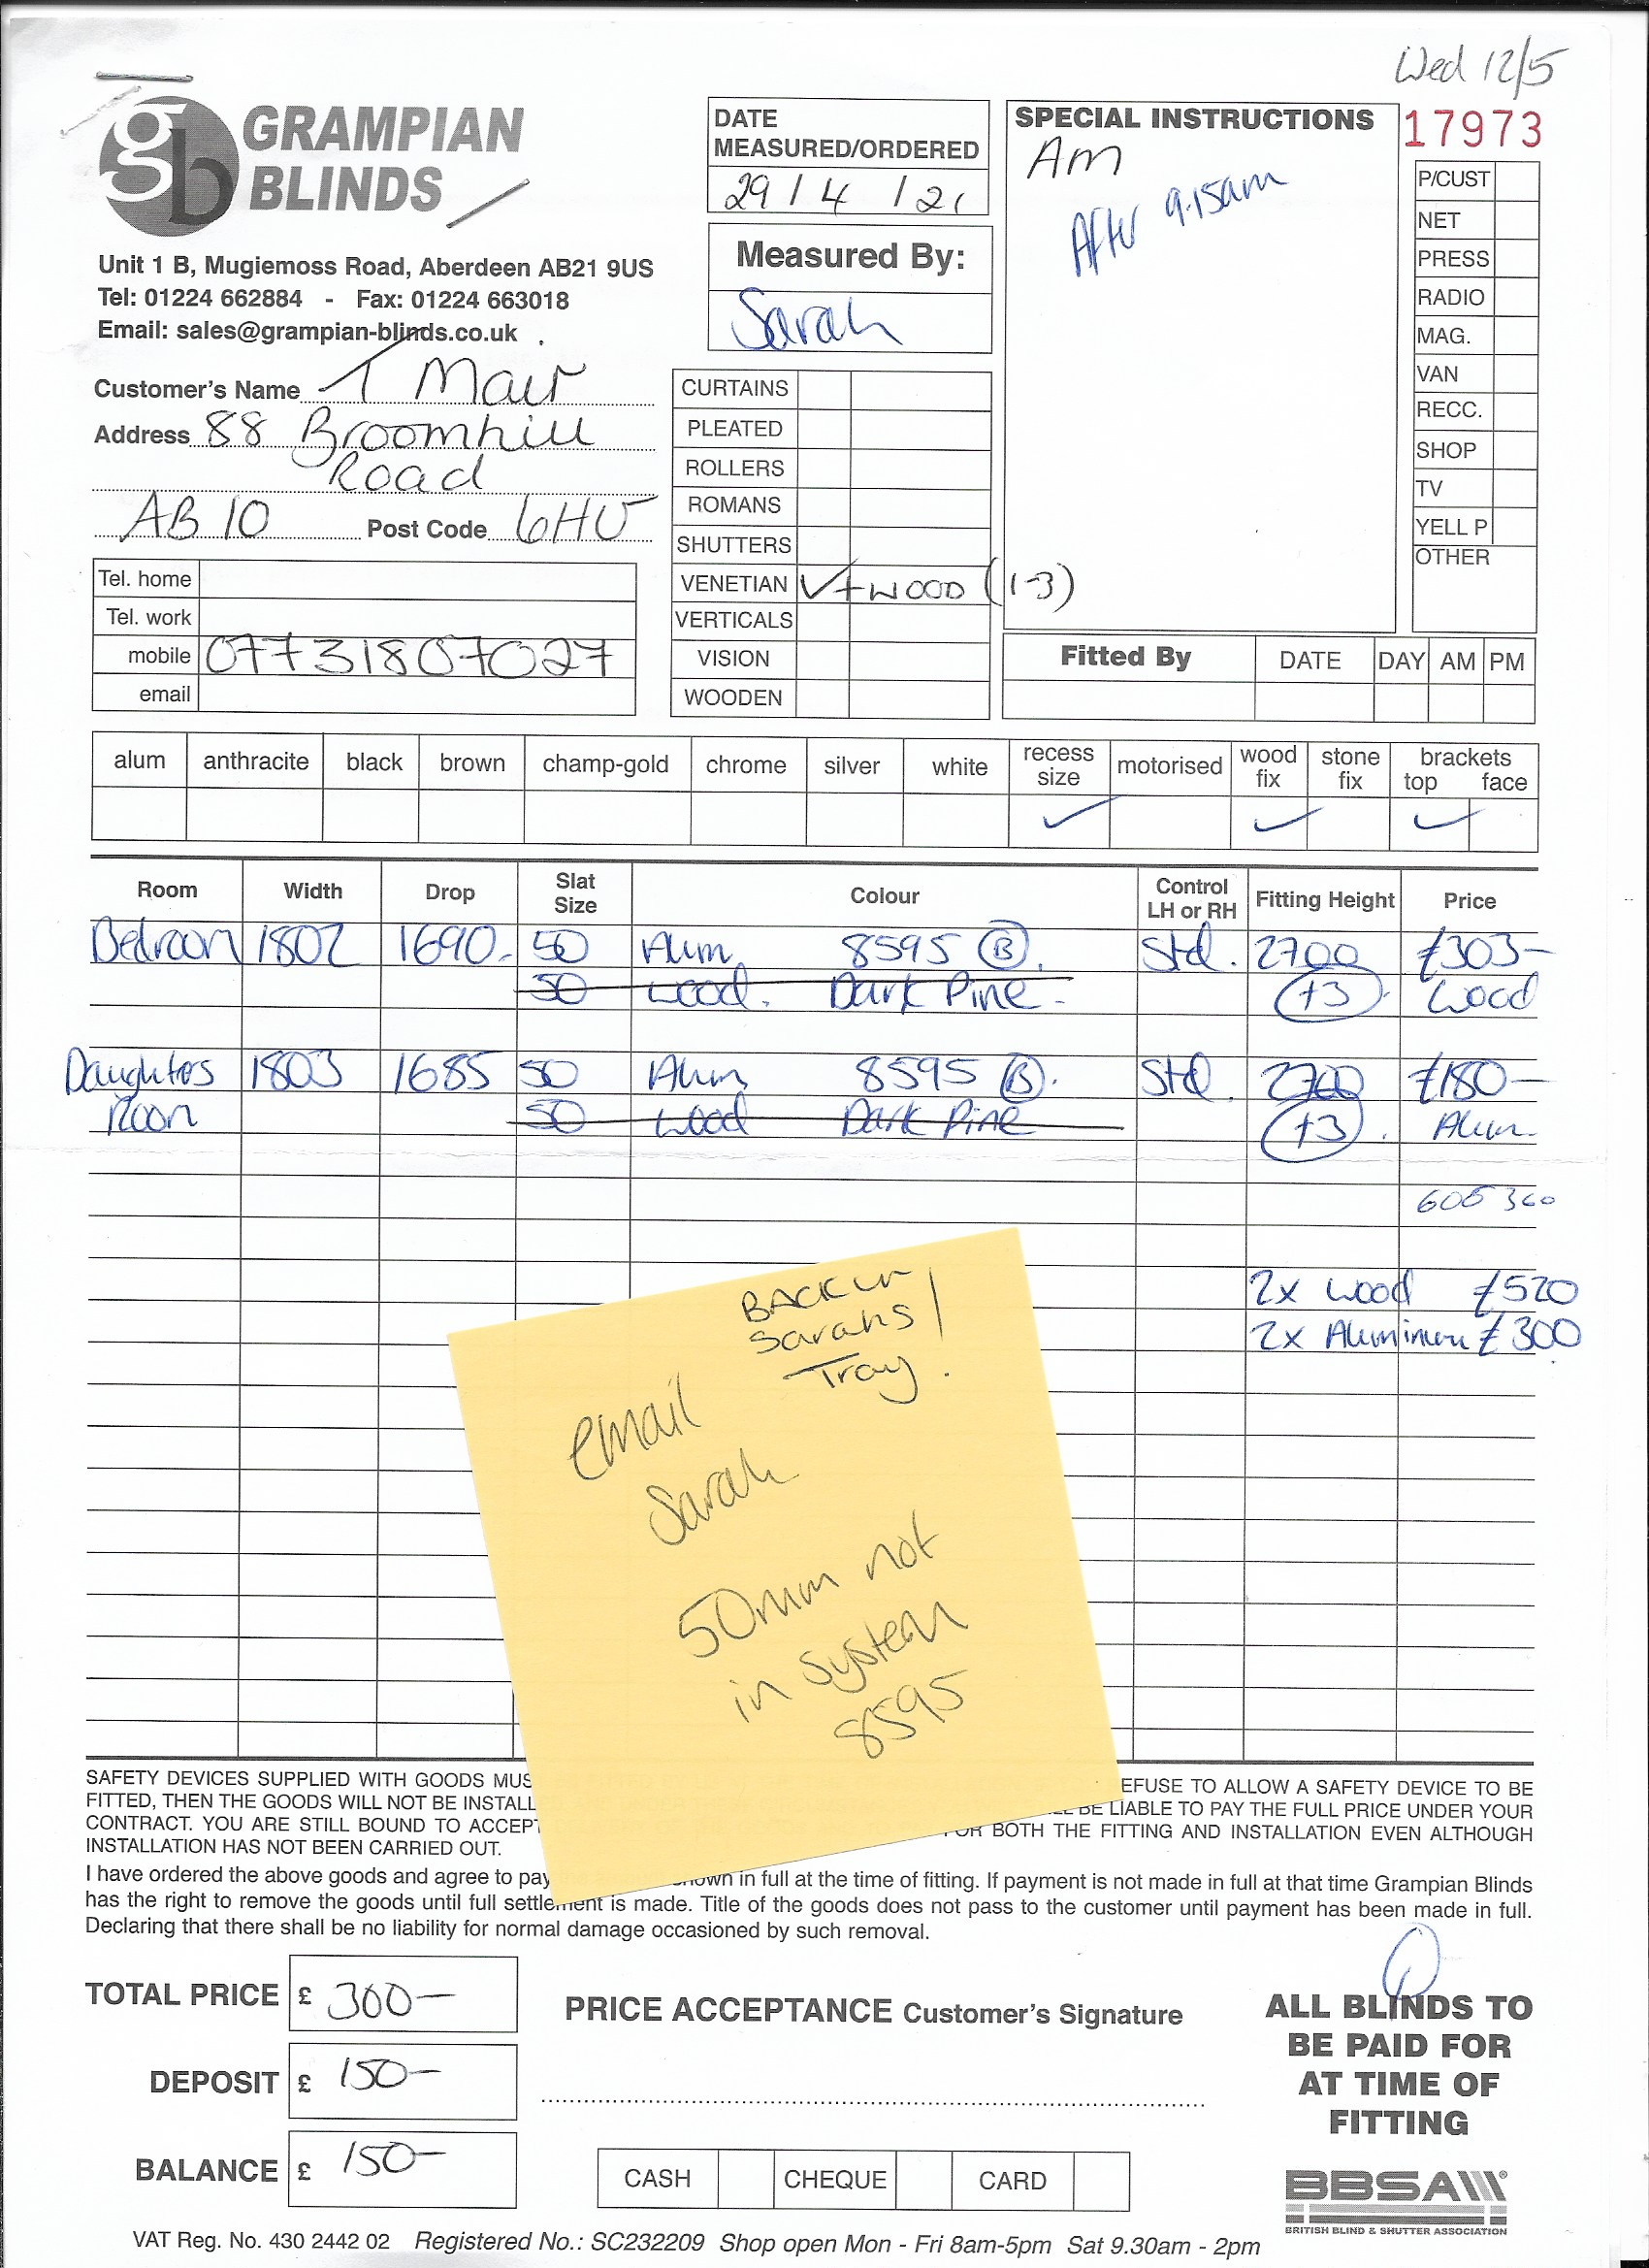 Wed 12/5
GRAMPIAN
BLINDS
Unit 1 B, Mugiemoss Road, Aberdeen AB21 9US
Tel: 01224 662884 - Fax: 01224 663018
Email: sales@grampian-blinds.co.uk
DATE
MEASURED/ORDERED
29 / 4 / 21
Measured By:
Sarah
SPECIAL INSTRUCTIONS
Am
After 9.15am
17973
P/CUST
NET
PRESS
RADIO
MAG.
VAN
RECC.
SHOP
TV
YELL P
OTHER
Customer's Name T Mair
Address 88 Broomhill
Road
AB10 Post Code 6HU
Tel. home
Tel. work
mobile 07731807027
email
CURTAINS
PLEATED
ROLLERS
ROMANS
SHUTTERS
VENETIAN ✓ + WOOD (1-3)
VERTICALS
VISION
WOODEN
Fitted By DATE DAY AM PM
alum anthracite black brown champ-gold chrome silver white recess size motorised wood fix stone fix brackets top face
✓ ✓ ✓
Room Width Drop Slat Size Colour Control LH or RH Fitting Height Price
Bedroom 1802 1690 50 Alum 8595 B Std. 2700 £303-
50 Wood. Dark Pine - +3 Wood
Daughters 1803 1685 50 Alum 8595 B. Std. 2700 £180-
Room 50 Wood Dark Pine +3 Alum
606 360
2x Wood £520
2x Aluminium £300
BACK IN
Sarahs
Tray.
email
Sarah
50mm not
in system
8595
SAFETY DEVICES SUPPLIED WITH GOODS EFUSE TO ALLOW A SAFETY DEVICE TO BE
FITTED, THEN THE GOODS WILL NOT BE BE LIABLE TO PAY THE FULL PRICE UNDER YOUR
CONTRACT. YOU ARE STILL BOUND TO BOTH THE FITTING AND INSTALLATION EVEN ALTHOUGH
INSTALLATION HAS NOT BEEN CARRIED OUT.
I have ordered the above goods and agree to pay in full at the time of fitting. If payment is not made in full at that time Grampian Blinds
has the right to remove the goods until full settlement is made. Title of the goods does not pass to the customer until payment has been made in full.
Declaring that there shall be no liability for normal damage occasioned by such removal.
TOTAL PRICE £ 300-
DEPOSIT £ 150-
BALANCE £ 150-
PRICE ACCEPTANCE Customer's Signature
CASH CHEQUE CARD
ALL BLINDS TO
BE PAID FOR
AT TIME OF
FITTING
BBSA
BRITISH BLIND & SHUTTER ASSOCIATION
VAT Reg. No. 430 2442 02 Registered No.: SC232209 Shop open Mon - Fri 8am-5pm Sat 9.30am - 2pm